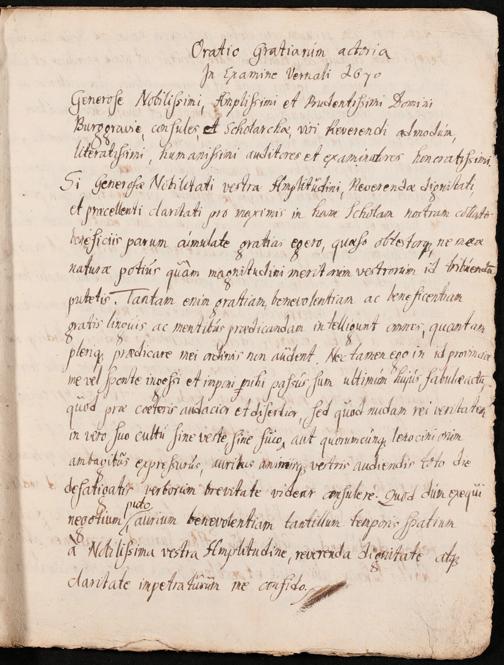 Oratio gratiarum actoria
In Examine Vernali 1670
Generose Nobilissimi, Amplissimi et Prudentissimi Domini
Burggravie, consules, et Scholarchæ, viri Reverendi admodum,
literatissimi, humanissimi auditores et examinatores honoratissimi
Si Generosæ Nobilitati vestræ Amplitudini, Reverendæ dignitati,
et præcellenti claritati pro maximis in hanc Scholam nostram collatis
beneficiis parum cumulate gratias egero, quæso obtestorq, ne meæ
naturæ potius quàm magnitudini meritorum vestrorum id tribuendū
putetis. Tantam enim gratiam, benevolentiam ac beneficentiam
gratis linguis ac mentibus prædicandam intelligunt omnes, quantam
pleriq prædicare mei ordinis non audent. Nec tamen ego in id provinciæ
me vel sponte ingessi et imponi mihi passus sum ultimum hujus fabulæ actū,
quòd præ cæteris audacior et disertior, sed quòd nudam rei veritatem
in vero suo cultu sine veste sine fuco, aut quorumcunq lenociniorum
ambagibus expressurus, auribus animisq vestris audiendis toto die
defatigatis verborum brevitate videar consulere. Quod dum exequi
negotium puto, aurium benevolentiam tantillum temporis spatium
à Nobilissima vestra Amplitudine, reverenda dignitate atq
claritate impetraturum me confido.